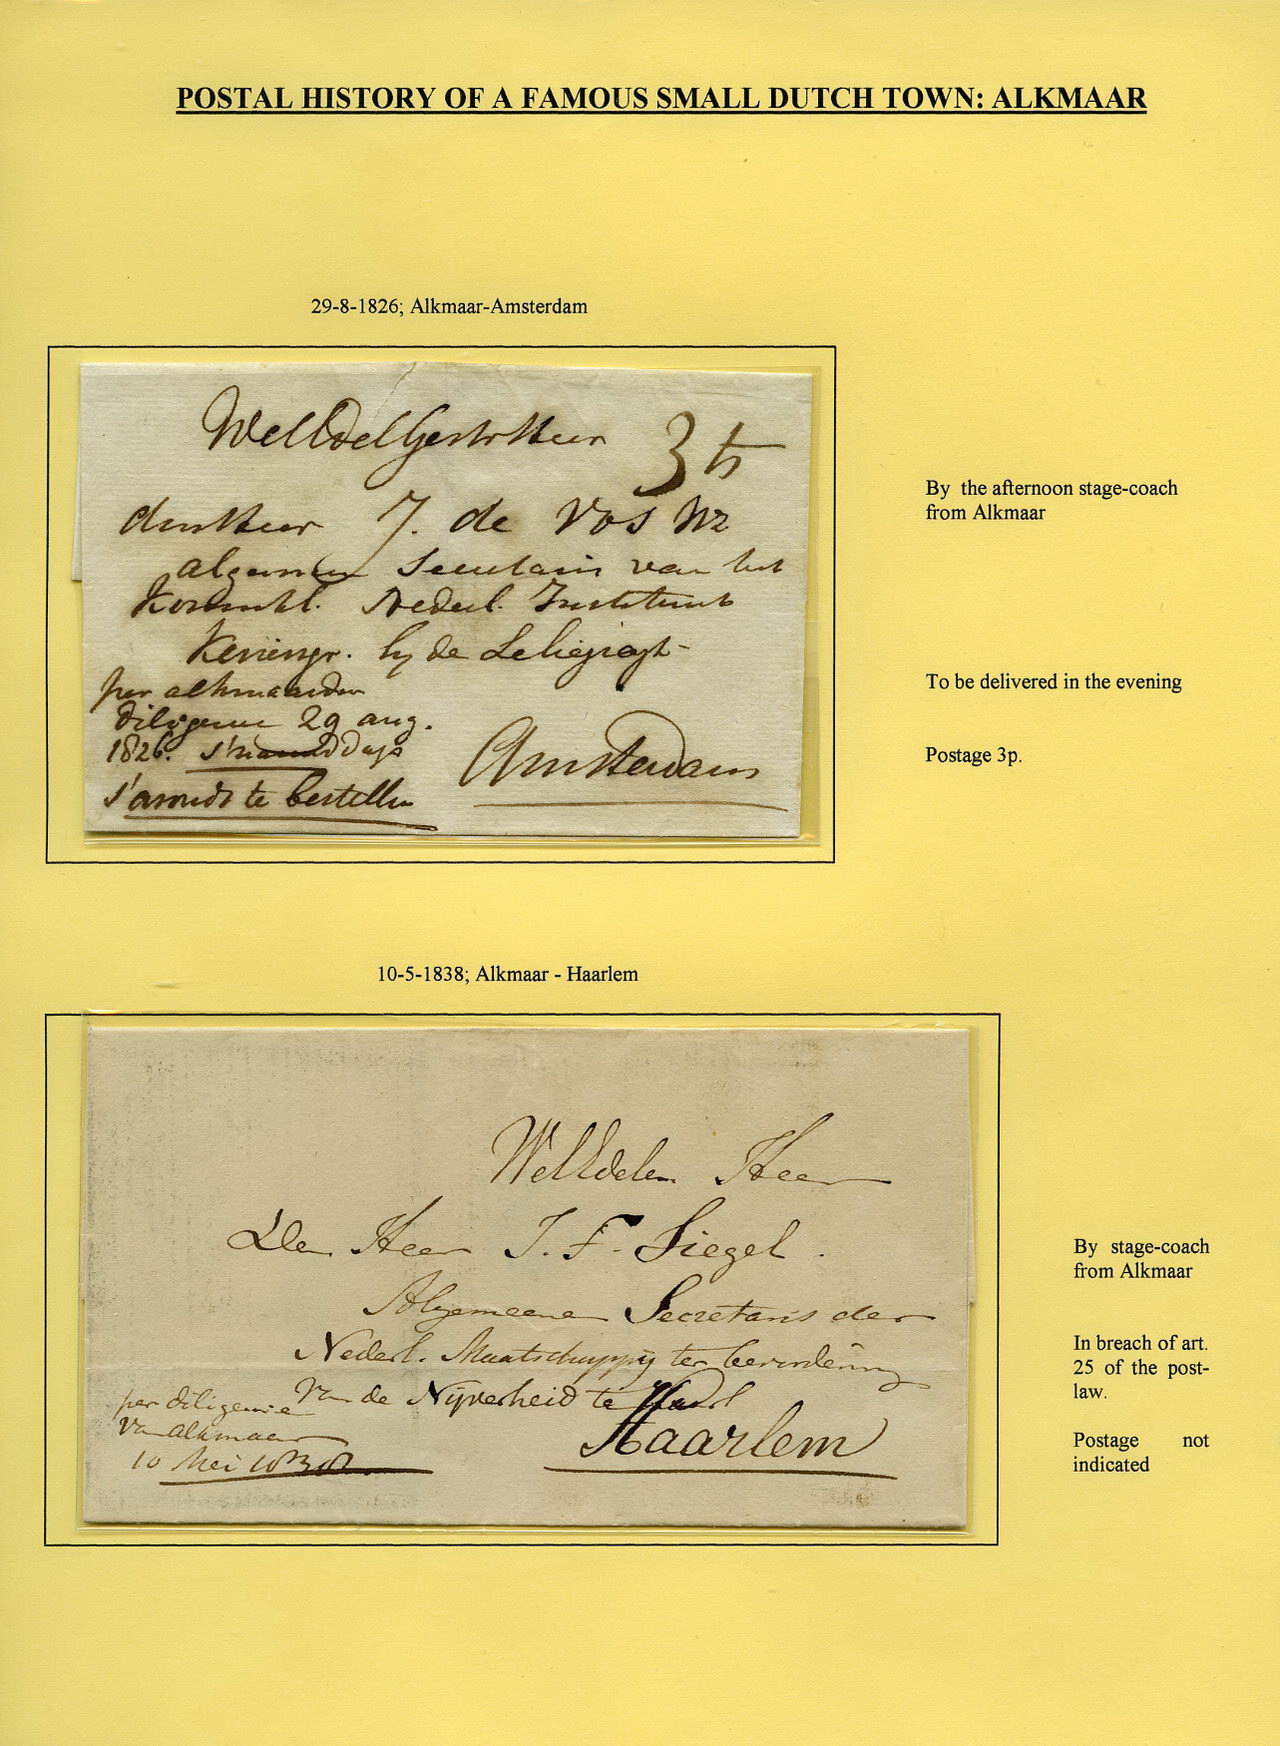 POSTAL HISTORY OF A FAMOUS SMALL DUTCH TOWN: ALKMAAR
29-8-1826; Alkmaar-Amsterdam
WelEdelGestr Heer
3 st
den Heer J. de Vos Wz
algemeen Secretaris van het
Koninkl. Nederl. Instituut
Keizersgr. by de Leliegragt
per alkmaarder
diligence 29 aug.
1826. s'namiddags
s'avonds te bestellen
Amsterdam
By the afternoon stage-coach
from Alkmaar
To be delivered in the evening
Postage 3p.
10-5-1838; Alkmaar - Haarlem
WelEdelen Heer
Den Heer J. F. Siegel.
Algemeene Secretaris der
Nederl. Maatschuppij ter bevordering
van de Nijverheid te Haarl
per diligencie
van alkmaar
10 Mei 1838.
Haarlem
By stage-coach
from Alkmaar
In breach of art.
25 of the post-
law.
Postage not
indicated